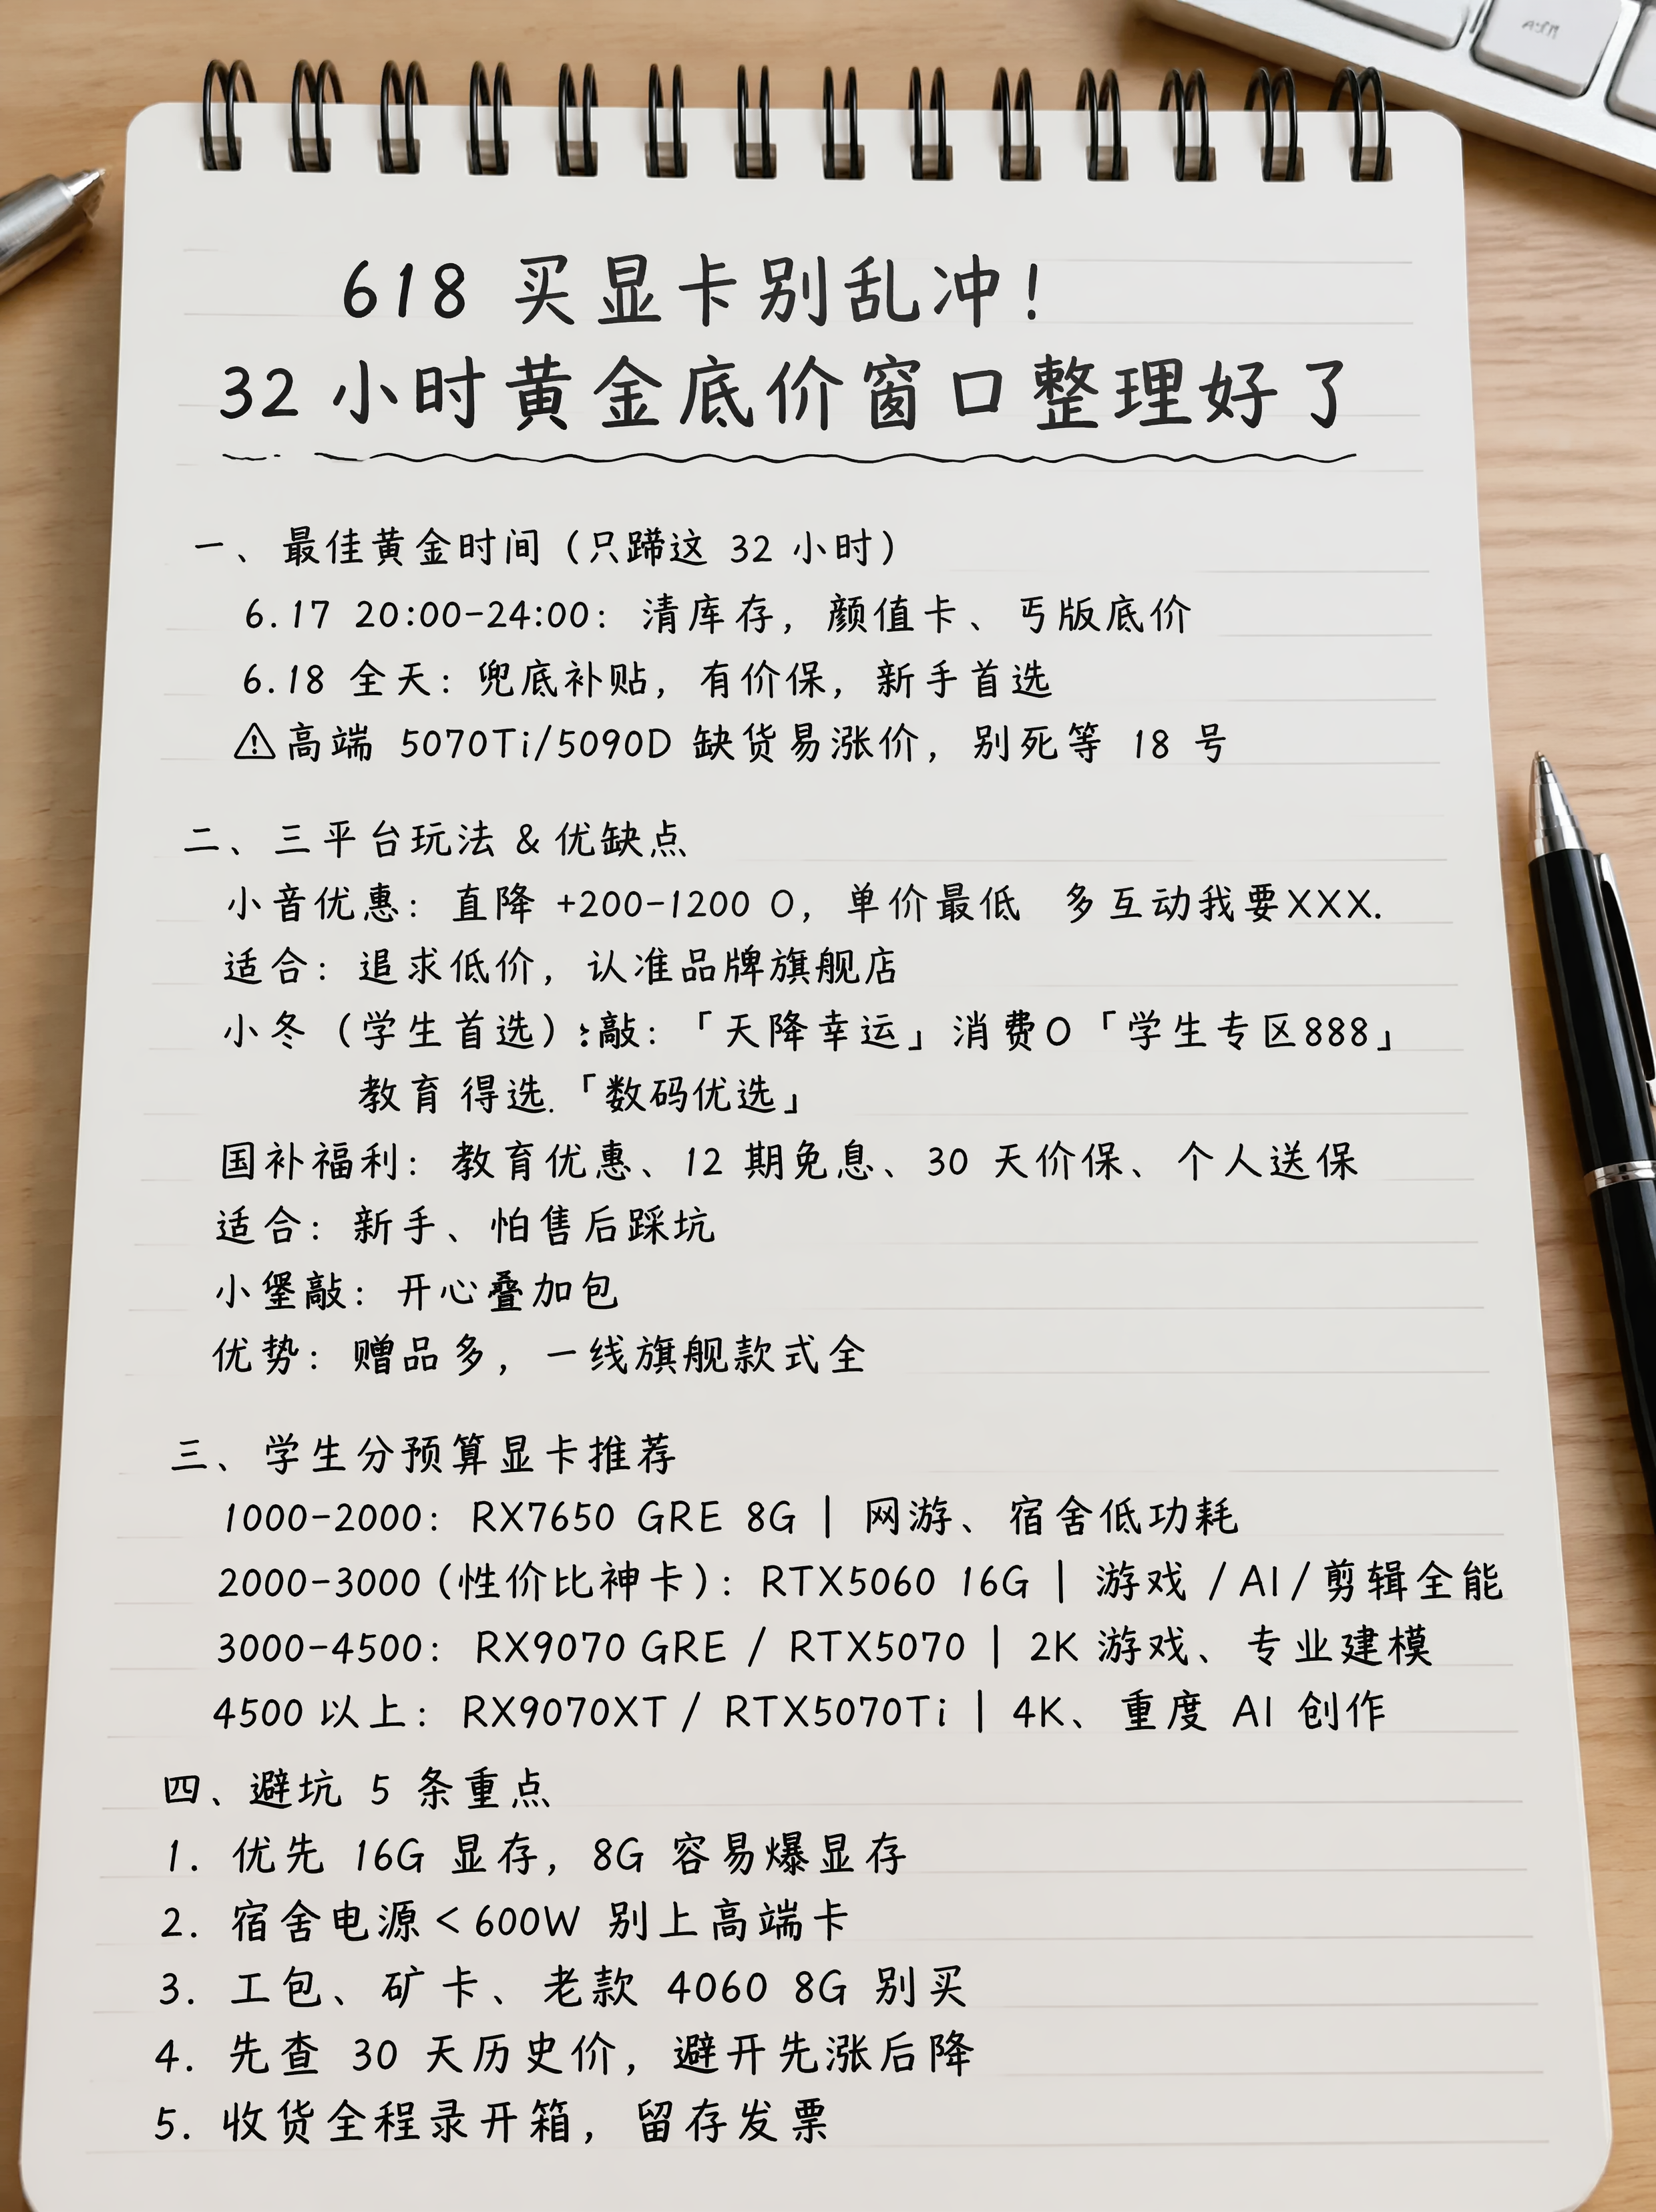 618 买显卡别乱冲！
32 小时黄金底价窗口整理好了
一、最佳黄金时间（只蹲这 32 小时）
6.17 20:00-24:00：清库存，颜值卡、丐版底价
6.18 全天：兜底补贴，有价保，新手首选
⚠高端 5070Ti/5090D 缺货易涨价，别死等 18 号
二、三平台玩法 & 优缺点
小音优惠：直降 +200-1200 O，单价最低 多互动我要XXX.
适合：追求低价，认准品牌旗舰店
小冬（学生首选）:敲：「天降幸运」消费O「学生专区888」
教育 得选.「数码优选」
国补福利：教育优惠、12 期免息、30 天价保、个人送保
适合：新手、怕售后踩坑
小堡敲：开心叠加包
优势：赠品多，一线旗舰款式全
三、学生分预算显卡推荐
1000-2000：RX7650 GRE 8G | 网游、宿舍低功耗
2000-3000（性价比神卡）：RTX5060 16G | 游戏 /AI/剪辑全能
3000-4500：RX9070 GRE / RTX5070 | 2K 游戏、专业建模
4500 以上：RX9070XT / RTX5070Ti | 4K、重度 AI 创作
四、避坑 5 条重点
1. 优先 16G 显存，8G 容易爆显存
2. 宿舍电源＜600W 别上高端卡
3. 工包、矿卡、老款 4060 8G 别买
4. 先查 30 天历史价，避开先涨后降
5. 收货全程录开箱，留存发票